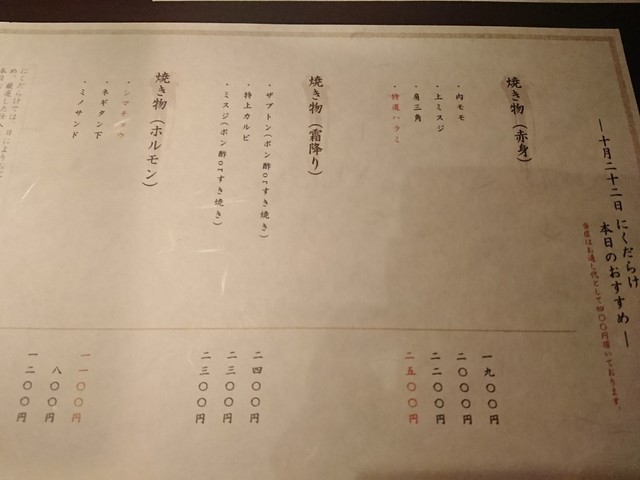 ―十月二十二日 にくだらけ
本日のおすすめ―
当店はお通し代として四〇〇円頂いております。
焼き物（赤身）
・内モモ 一九〇〇円
・肩三角 二〇〇〇円
・上ミスジ 二二〇〇円
・特選ハラミ 二五〇〇円
焼き物（霜降り）
・ザブトン（ポン酢orすき焼き） 二四〇〇円
・特上カルビ 二三〇〇円
・ミスジ（ポン酢orすき焼き） 二三〇〇円
焼き物（ホルモン）
・シマチョウ 一一〇〇円
・ネギタン下 八〇〇円
・ミノサンド 一二〇〇円
にくだらけでは、日によ